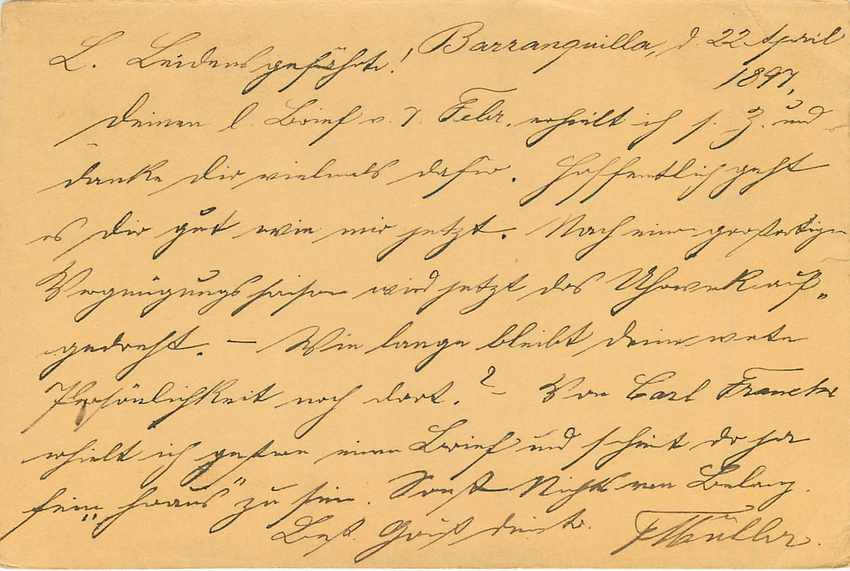 L. Leidensgefährte! Barranquilla, d. 22 April
1897,
Deinen l. Brief v. 7. Febr. erhielt ich s. Z. und
danke dir vielmals dafür. Hoffentlich geht
es dir gut wie mir jetzt. Nach einer großartigen
Vergnügungssaison wird jetzt das Uhrwerk auf-
gedreht. – Wie lange bleibt deine werte
Persönlichkeit noch dort.? – Von Carl Francke
erhielt ich gestern einen Brief und scheint da ja
fein „heraus" zu sein. Sonst Nichts von Belang.
Best. Gruß dein tr. Müller.